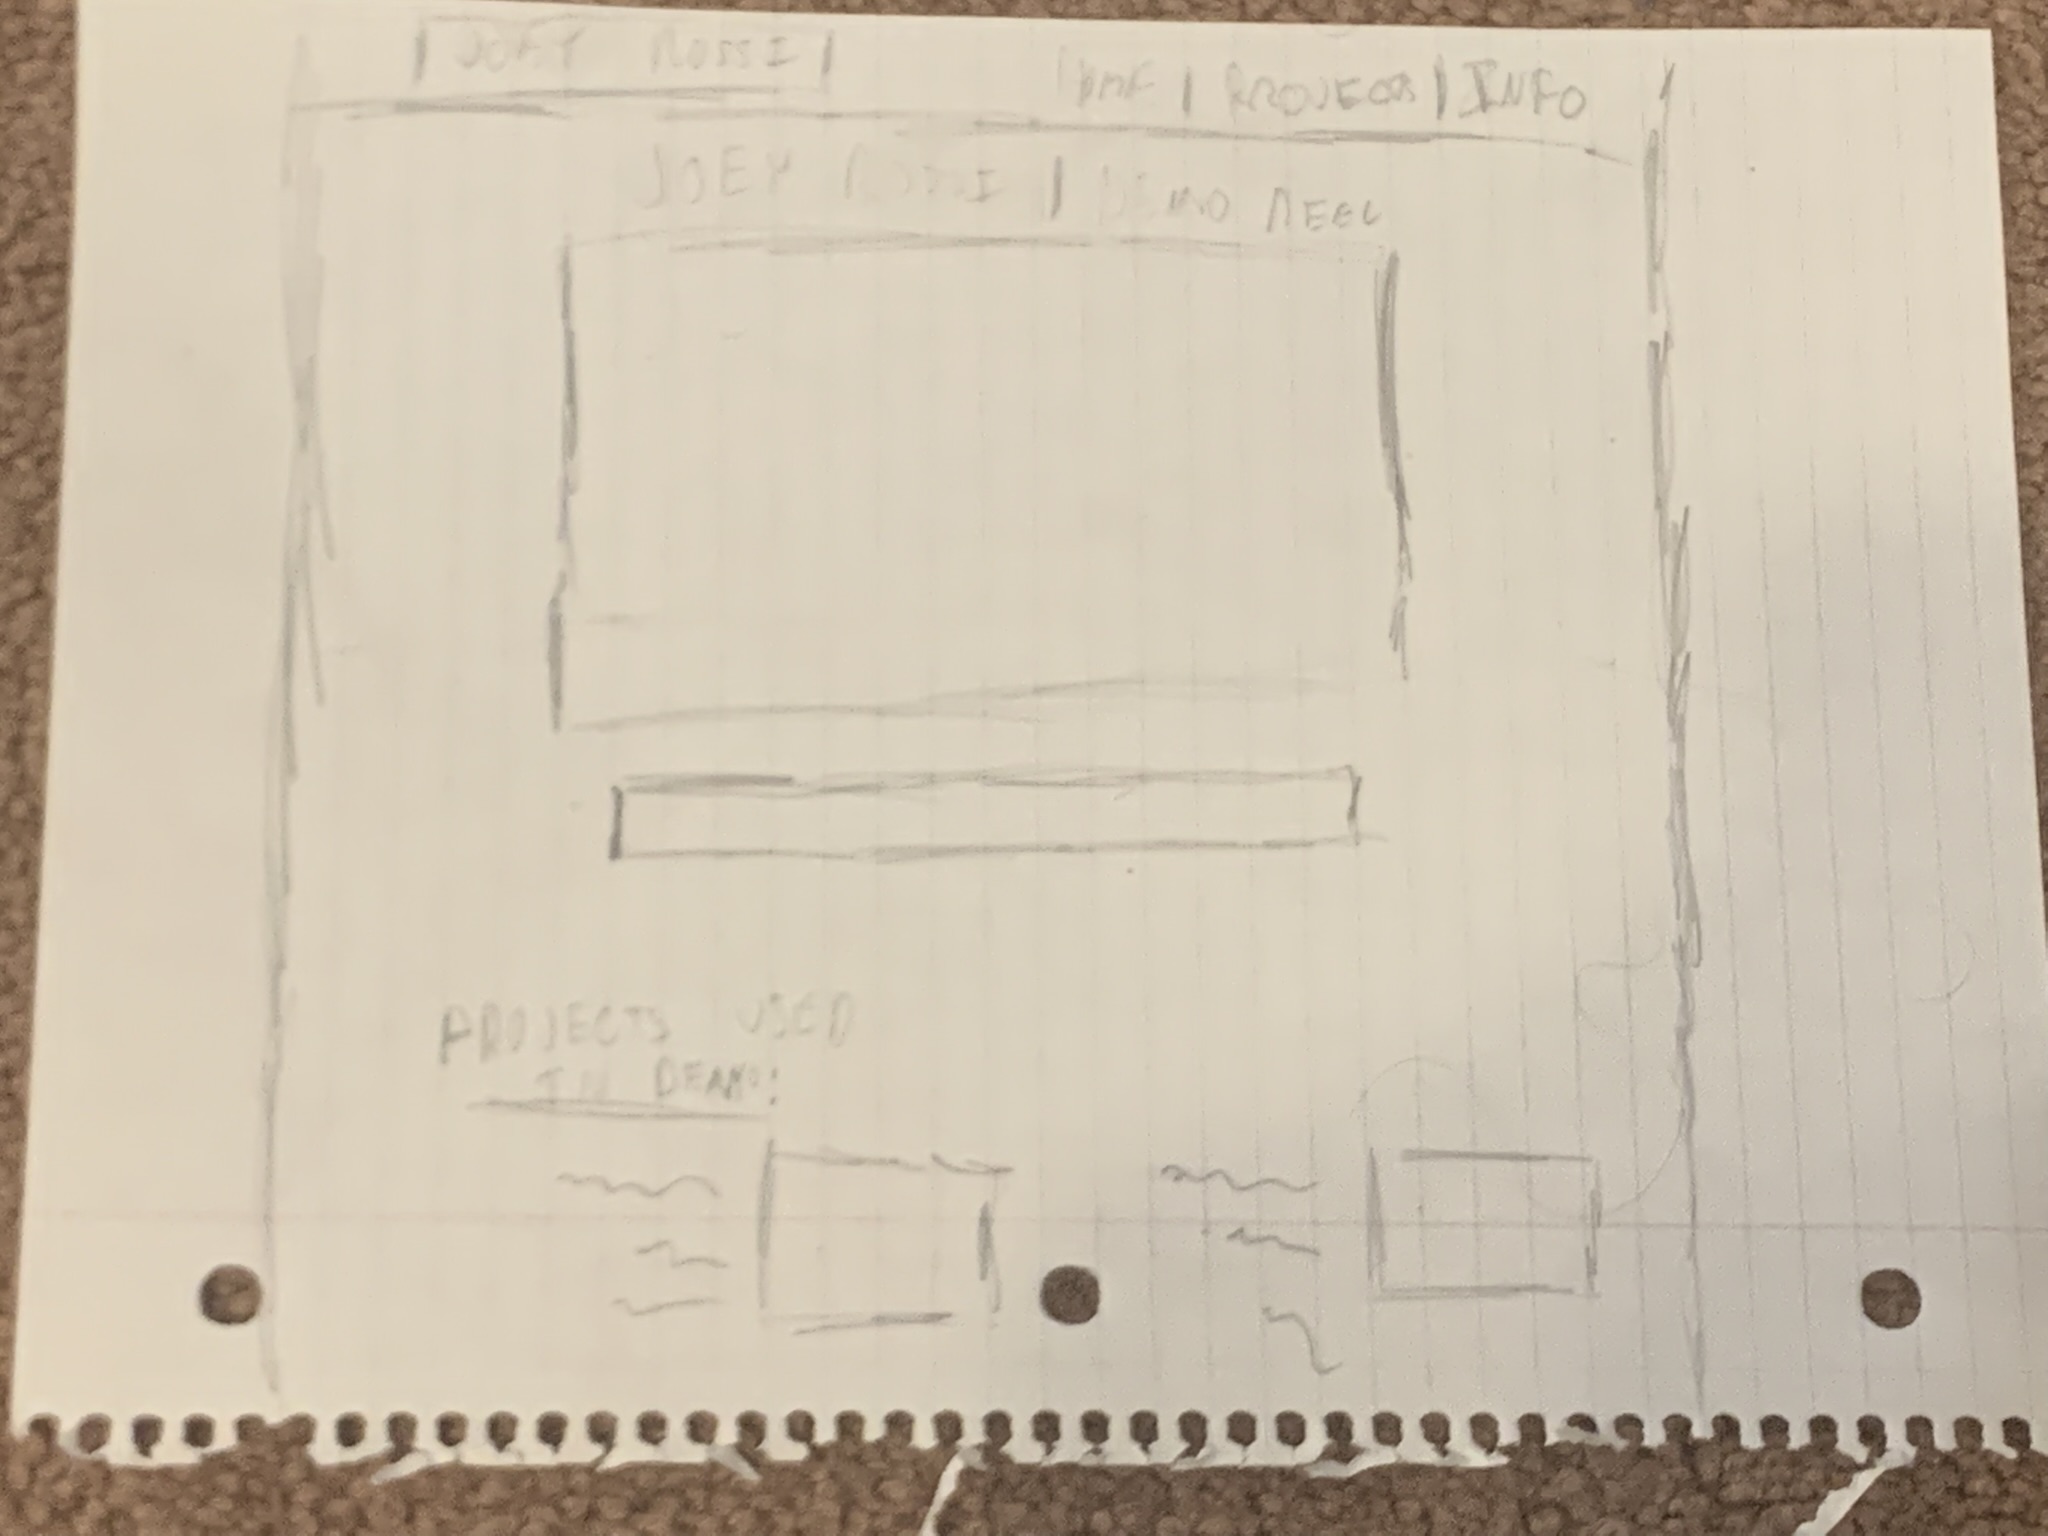 JOEY ROSSI
HOME | PROJECTS | INFO
JOEY ROSSI | DEMO REEL
PROJECTS USED
IN DEMO: